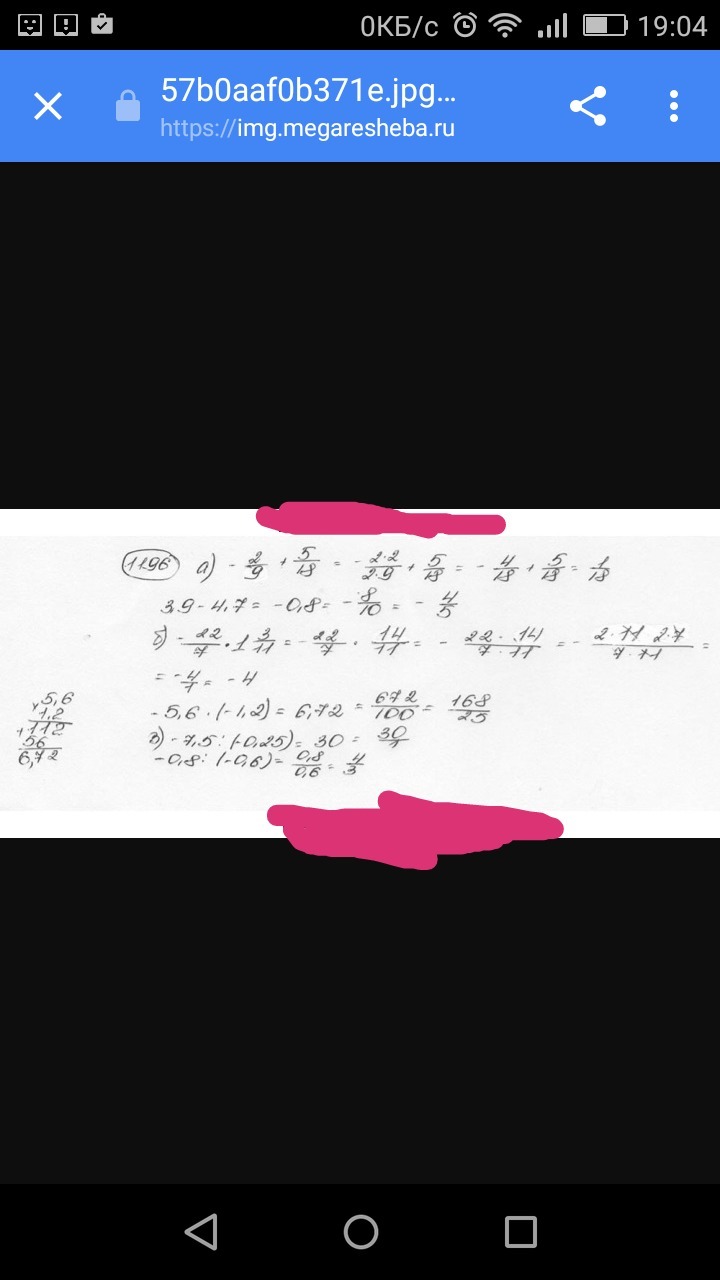 0КБ/с 19:04
57b0aaf0b371e.jpg...
https://img.megaresheba.ru
1196 а) - 2/9 + 5/18 = - 2·2/2·9 + 5/18 = - 4/18 + 5/18 = 1/18
3,9 - 4,7 = -0,8 = - 8/10 = - 4/5
б) - 22/7 · 1 3/11 = - 22/7 · 14/11 = - 22·14/7·11 = - 2·11 2·7/7·11 =
= - 4/1 = - 4
- 5,6 · (-1,2) = 6,72 = 672/100 = 168/25
в) - 7,5 : (-0,25) = 30 = 30/1
-0,8 : (-0,6) = 0,8/0,6 = 4/3
×5,6
1,2
+112
56
6,72